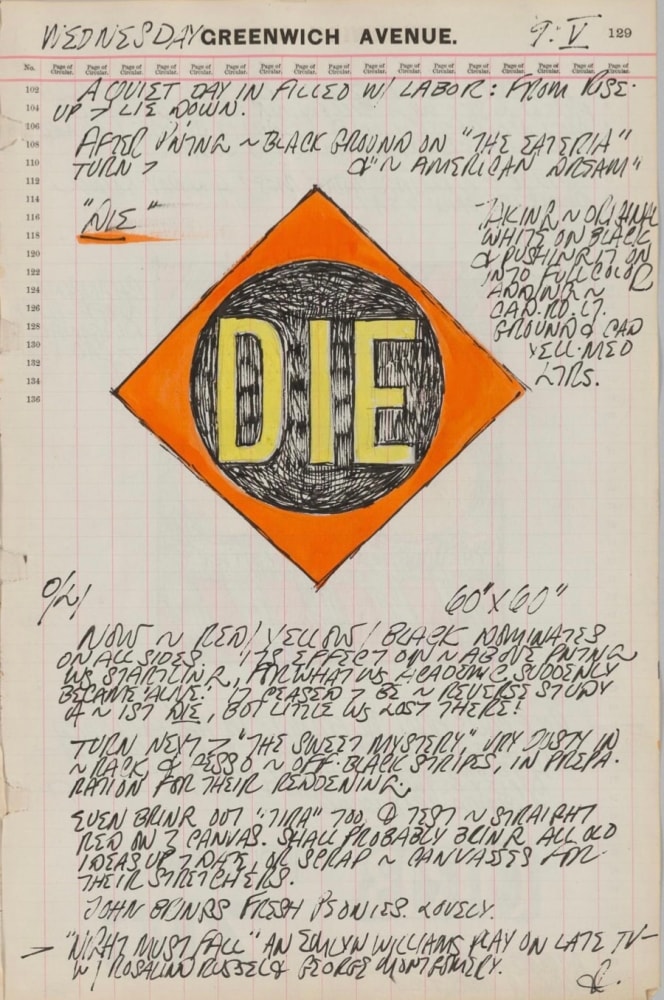 WEDNESDAY GREENWICH AVENUE. 9·V 129
No. Page of Circular. Page of Circular. Page of Circular. Page of Circular. Page of Circular. Page of Circular. Page of Circular. Page of Circular. Page of Circular. Page of Circular. Page of Circular. Page of Circular. Page of Circular. Page of Circular. Page of Circular. Page of Circular.
102
104
106
108
110
112
114
116
118
120
122
124
126
128
130
132
134
136
A QUIET DAY IN FILLED W/ LABOR: FROM RISE·
UP > LIE DOWN.
AFTER P'NTNG ~ BLACK GROUND ON "THE EATERIA"
TURN > & "~ AMERICAN DREAM"
"DIE"
TAKING ~ ORIGINAL
WHITE ON BLACK
& PUSHING IT ON
INTO FULL COLOR
ADDING ~
CAD. RD. LT.
GROUND & CAD
YELL· MED
LTRS.
DIE
O/L/ 60" X 60"
NOW ~ RED / YELLOW / BLACK DOMINATES
ON ALL SIDES. ITS EFFECT ON ~ ABOVE PNTNG
WS STARTLING, FOR WHAT WS ACADEMIC, SUDDENLY
BECAME 'ALIVE.' IT CEASED > BE ~ REVERSE STUDY
~ 1ST DIE, BUT LITTLE WS LOST THERE!
TURN NEXT > "THE SWEET MYSTERY" VRY DUSTY IN
~ RACK & GESSO ~ OFF·BLACK STRIPES, IN PREPA·
RATION FOR THEIR REDOENING.
EVEN BRING OUT "TIRA" TOO, & TEST ~ STRAIGHT
RED ON CANVAS. SHALL PROBABLY BRING ALL OLD
IDEAS UP > DATE, OR SCRAP ~ CANVASSES FOR
THEIR STRETCHERS.
JOHN BRINGS FRESH PEONIES. LOVELY.
> "NIGHT MUST FALL" AN EMLYN WILLIAMS PLAY ON LATE TV—
W/ ROSALIND RUSSEL & GEORGE MONTGOMERY.